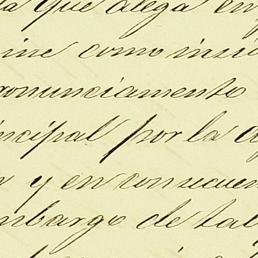 a que alega en
ine como insu
ronunciamento
incipal por la a
a y en consecuen
mbargo de tal